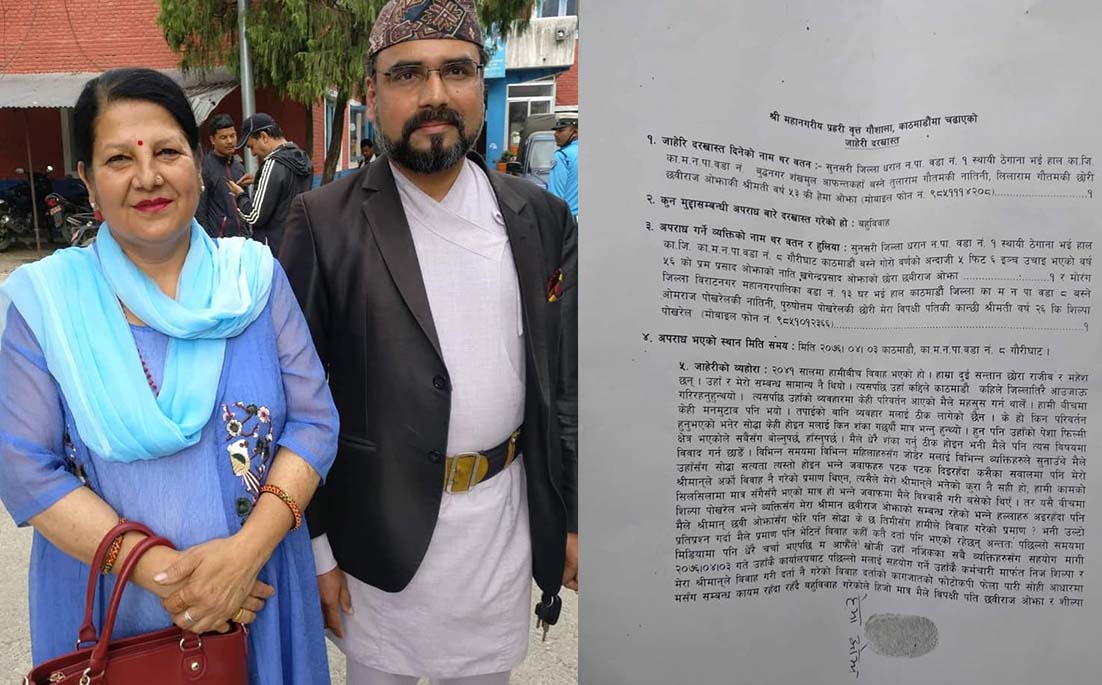 श्री महानगरीय प्रहरी वृत्त गौशाला, काठमाडौंमा चढाएको
जाहेरी दरखास्त
१. जाहेरि दरखास्त दिनेको नाम थर वतन :- सुनसरी जिल्ला धरान न.पा. वडा नं. १ स्थायी ठेगाना भई हाल का.जि.
का.म.न.पा.वडा नं. बुद्धनगर शंखमुल आफन्तकहां बस्ने तुलाराम गौतमकी नातिनी, लिलाराम गौतमकी छोरी
छवीराज ओझाकी श्रीमती वर्ष ५३ की हेमा ओझा (मोबाइल फोन नं. ९८५१११४२०८)..............................१
२. कुन मुद्दासम्बन्धी अपराध बारे दरखास्त गरेको हो : बहुविवाह
३. अपराध गर्ने व्यक्तिको नाम थर वतन र हुलिया : सुनसरी जिल्ला धरान न.पा. वडा नं. १ स्थायी ठेगाना भई हाल
का.जि. का.म.न.पा.वडा नं. ८ गौरीघाट काठमाडौं बस्ने गोरो वर्णको अन्दाजी ५ फिट ६ इञ्च उचाइ भएको वर्ष
५६ को प्रेम प्रसाद ओझाको नाति खगेन्द्रप्रसाद ओझाको छोरा छवीराज ओझा ..............................१ र मोरंग
जिल्ला विराटनगर महानगरपालिका वडा नं. १३ घर भई हाल काठमाडौं जिल्ला का म न पा वडा ८ बस्ने
ओमराज पोखरेलकी नातिनी, पुरुषोत्तम पोखरेलकी छोरी मेरा विपक्षी पतिकी कान्छी श्रीमती वर्ष २६ कि शिल्पा
पोखरेल (मोबाइल फोन नं. ९८५१०१२३६६)..............................१
४. अपराध भएको स्थान मिति समय : मिति २०७६।०४।०३ काठमाडौं, का.म.न.पा.वडा नं. ८ गौरीघाट ।
५. जाहेरीको व्यहोरा : २०४१ सालमा हामीबीच विवाह भएको हो । हाम्रा दुई सन्तान छोरा राजीव र महेश
छन् । उहाँ र मेरो सम्बन्ध सामान्य नै थियो । त्यसपछि उहाँ कहिले काठमाडौं कहिले जिल्लातिरै आउजाऊ
गरिरहनुहुन्थ्यो । त्यसपछि उहाँको व्यवहारमा केही परिवर्तन आएको मैले महसुस गर्न थालें । हामी बीचमा
केही मनमुटाव पनि भयो । तपाईको बानि व्यवहार मलाई ठीक लागेको छैन । के हो किन परिवर्तन
हुनुभएको भनेर सोद्धा केही होइन मलाई किन शंका गर्छ्यौ मात्र भन्नु हुन्थ्यो । हुन पनि उहाँको पेशा फिल्मी
क्षेत्र भएकोले सबैसंग बोल्नुपर्छ, हाँस्नुपर्छ । मैले धेरै शंका गर्नु ठीक होइन भनी मैले पनि त्यस विषयमा
विवाद गर्न छाडें । विभिन्न समयमा विभिन्न महिलाहरुसंग जोडेर मलाई विभिन्न व्यक्तिहरुले सुनाउंथे मैले
उहाँसंग सोद्धा सत्यता त्यस्तो होइन भन्ने जवाफहरु पटक पटक दिइरहंदा कसैका सवालमा पनि मेरो
श्रीमान्‌ले अर्को विवाह नै गरेको प्रमाण थिएन, त्यसैले मेरो श्रीमान्‌ले भनेको कुरा नै सही हो, हामी कामको
सिलसिलामा मात्र संगैसंगै भएको मात्र हो भन्ने जवाफमा मैले विश्वासै गरी बसेको थिएं । तर यसै बीचमा
शिल्पा पोखरेल भन्ने व्यक्तिसंग मेरा श्रीमान छवीराज ओझाको सम्बन्ध रहेको भन्ने हल्लाहरु आइरहंदा पनि
मैले श्रीमान् छवी ओझासंग फेरि पनि सोद्धा के छ तिमीसंग हामीले विवाह गरेको प्रमाण ? भनी उल्टो
प्रतिप्रश्न गर्दा मैले प्रमाण पनि भेटिनं विवाह कहीं कतै दर्ता पनि भएको रहेछन् अन्तत: पछिल्लो समयमा
मिडियामा पनि धेरै चर्चा भएपछि म आफैंले खोजी उहाँ नजिकका सबै व्यक्तिहरुसंग सहयोग मागी
२०७६।०४।०३ गते उहाँकै कार्यालयबाट पछिल्लो मलाई सहयोग गर्ने उहाँकै कर्मचारी मार्फत निज शिल्पा र
मेरा श्रीमान्‌ले विवाह गरी दर्ता नै गरेको विवाह दर्ताको कागजातको फोटोकपी फेला पारी सोही आधारमा
मसंग सम्बन्ध कायम रहँदा रहँदै बहुविवाह गरेकोले हिजो मात्र मैले विपक्षी पति छवीराज ओझा र शील्पा
हेमा ओझा